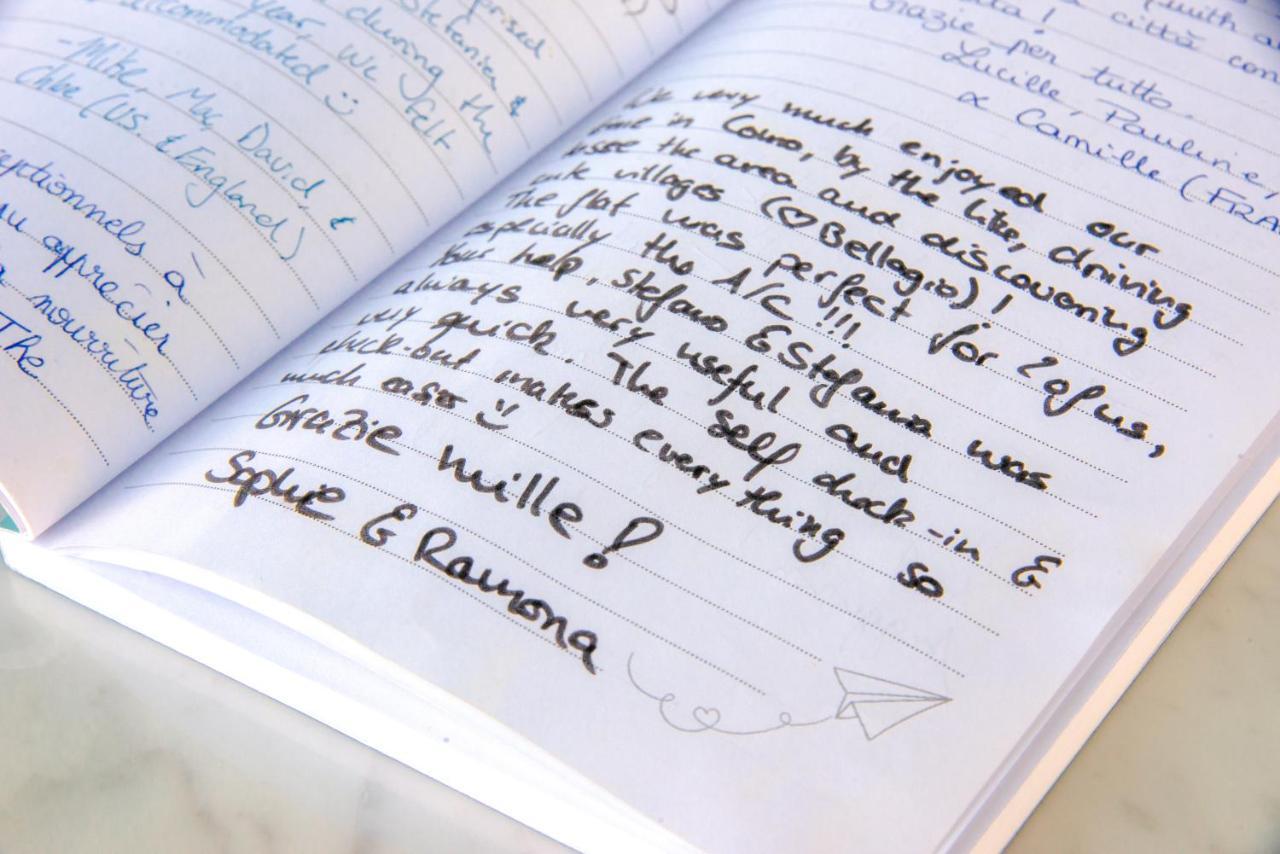 prised
Stefania &
during the
year, we felt
accommodated :)
-Mike, Mac, David, &
Chloe (US. & England)
à
au apprécier
nourriture
The
with a
città con
Grazie per tutto.
Lucille, Pauline,
& Camille (FRA
We very much enjoyed our
time in Como, by the like, driving
the area and discovering
cute villages (♡Bellagio)!
The flat was perfect for 2 of us,
especially the A/C !!!
Your help, Stefano & Stefania was
always very useful and
very quick. The self check-in &
check-out makes everything so
much easier :)
Grazie mille!
Sophie & Ramona